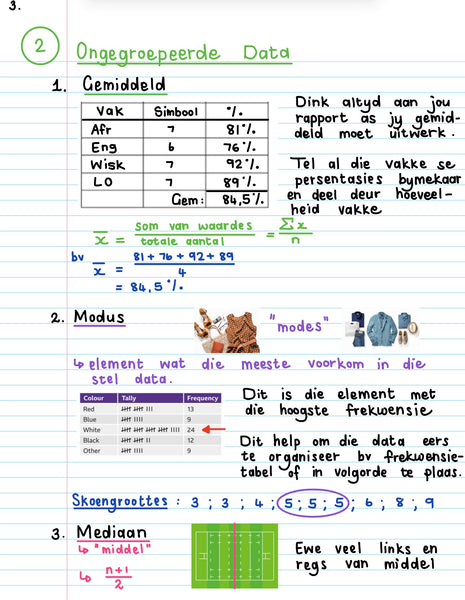 3.
2 Ongegroepeerde Data
1. Gemiddeld
Vak Simbool %
Afr 7 81%
Eng 6 76%
Wisk 7 92%
LO 7 89%
Gem: 84,5%
Dink altyd aan jou
rapport as jy gemid-
deld moet uitwerk.
Tel al die vakke se
persentasies bymekaar
en deel deur hoeveel-
heid vakke
x̅ = som van waardes / totale aantal = Σx / n
bv x̅ = 81 + 76 + 92 + 89 / 4
= 84,5%
2. Modus
"modes"
↳ element wat die meeste voorkom in die
stel data.
Colour Tally Frequency
Red 13
Blue 9
White 24
Black 12
Other 9
Dit is die element met
die hoogste frekwensie
Dit help om die data eers
te organiseer bv frekwensie-
tabel of in volgorde te plaas.
Skoengroottes : 3 ; 3 ; 4 ; 5 ; 5 ; 5 ; 6 ; 8 ; 9
3. Mediaan
↳ "middel"
↳ n+1 / 2
Ewe veel links en
regs van middel